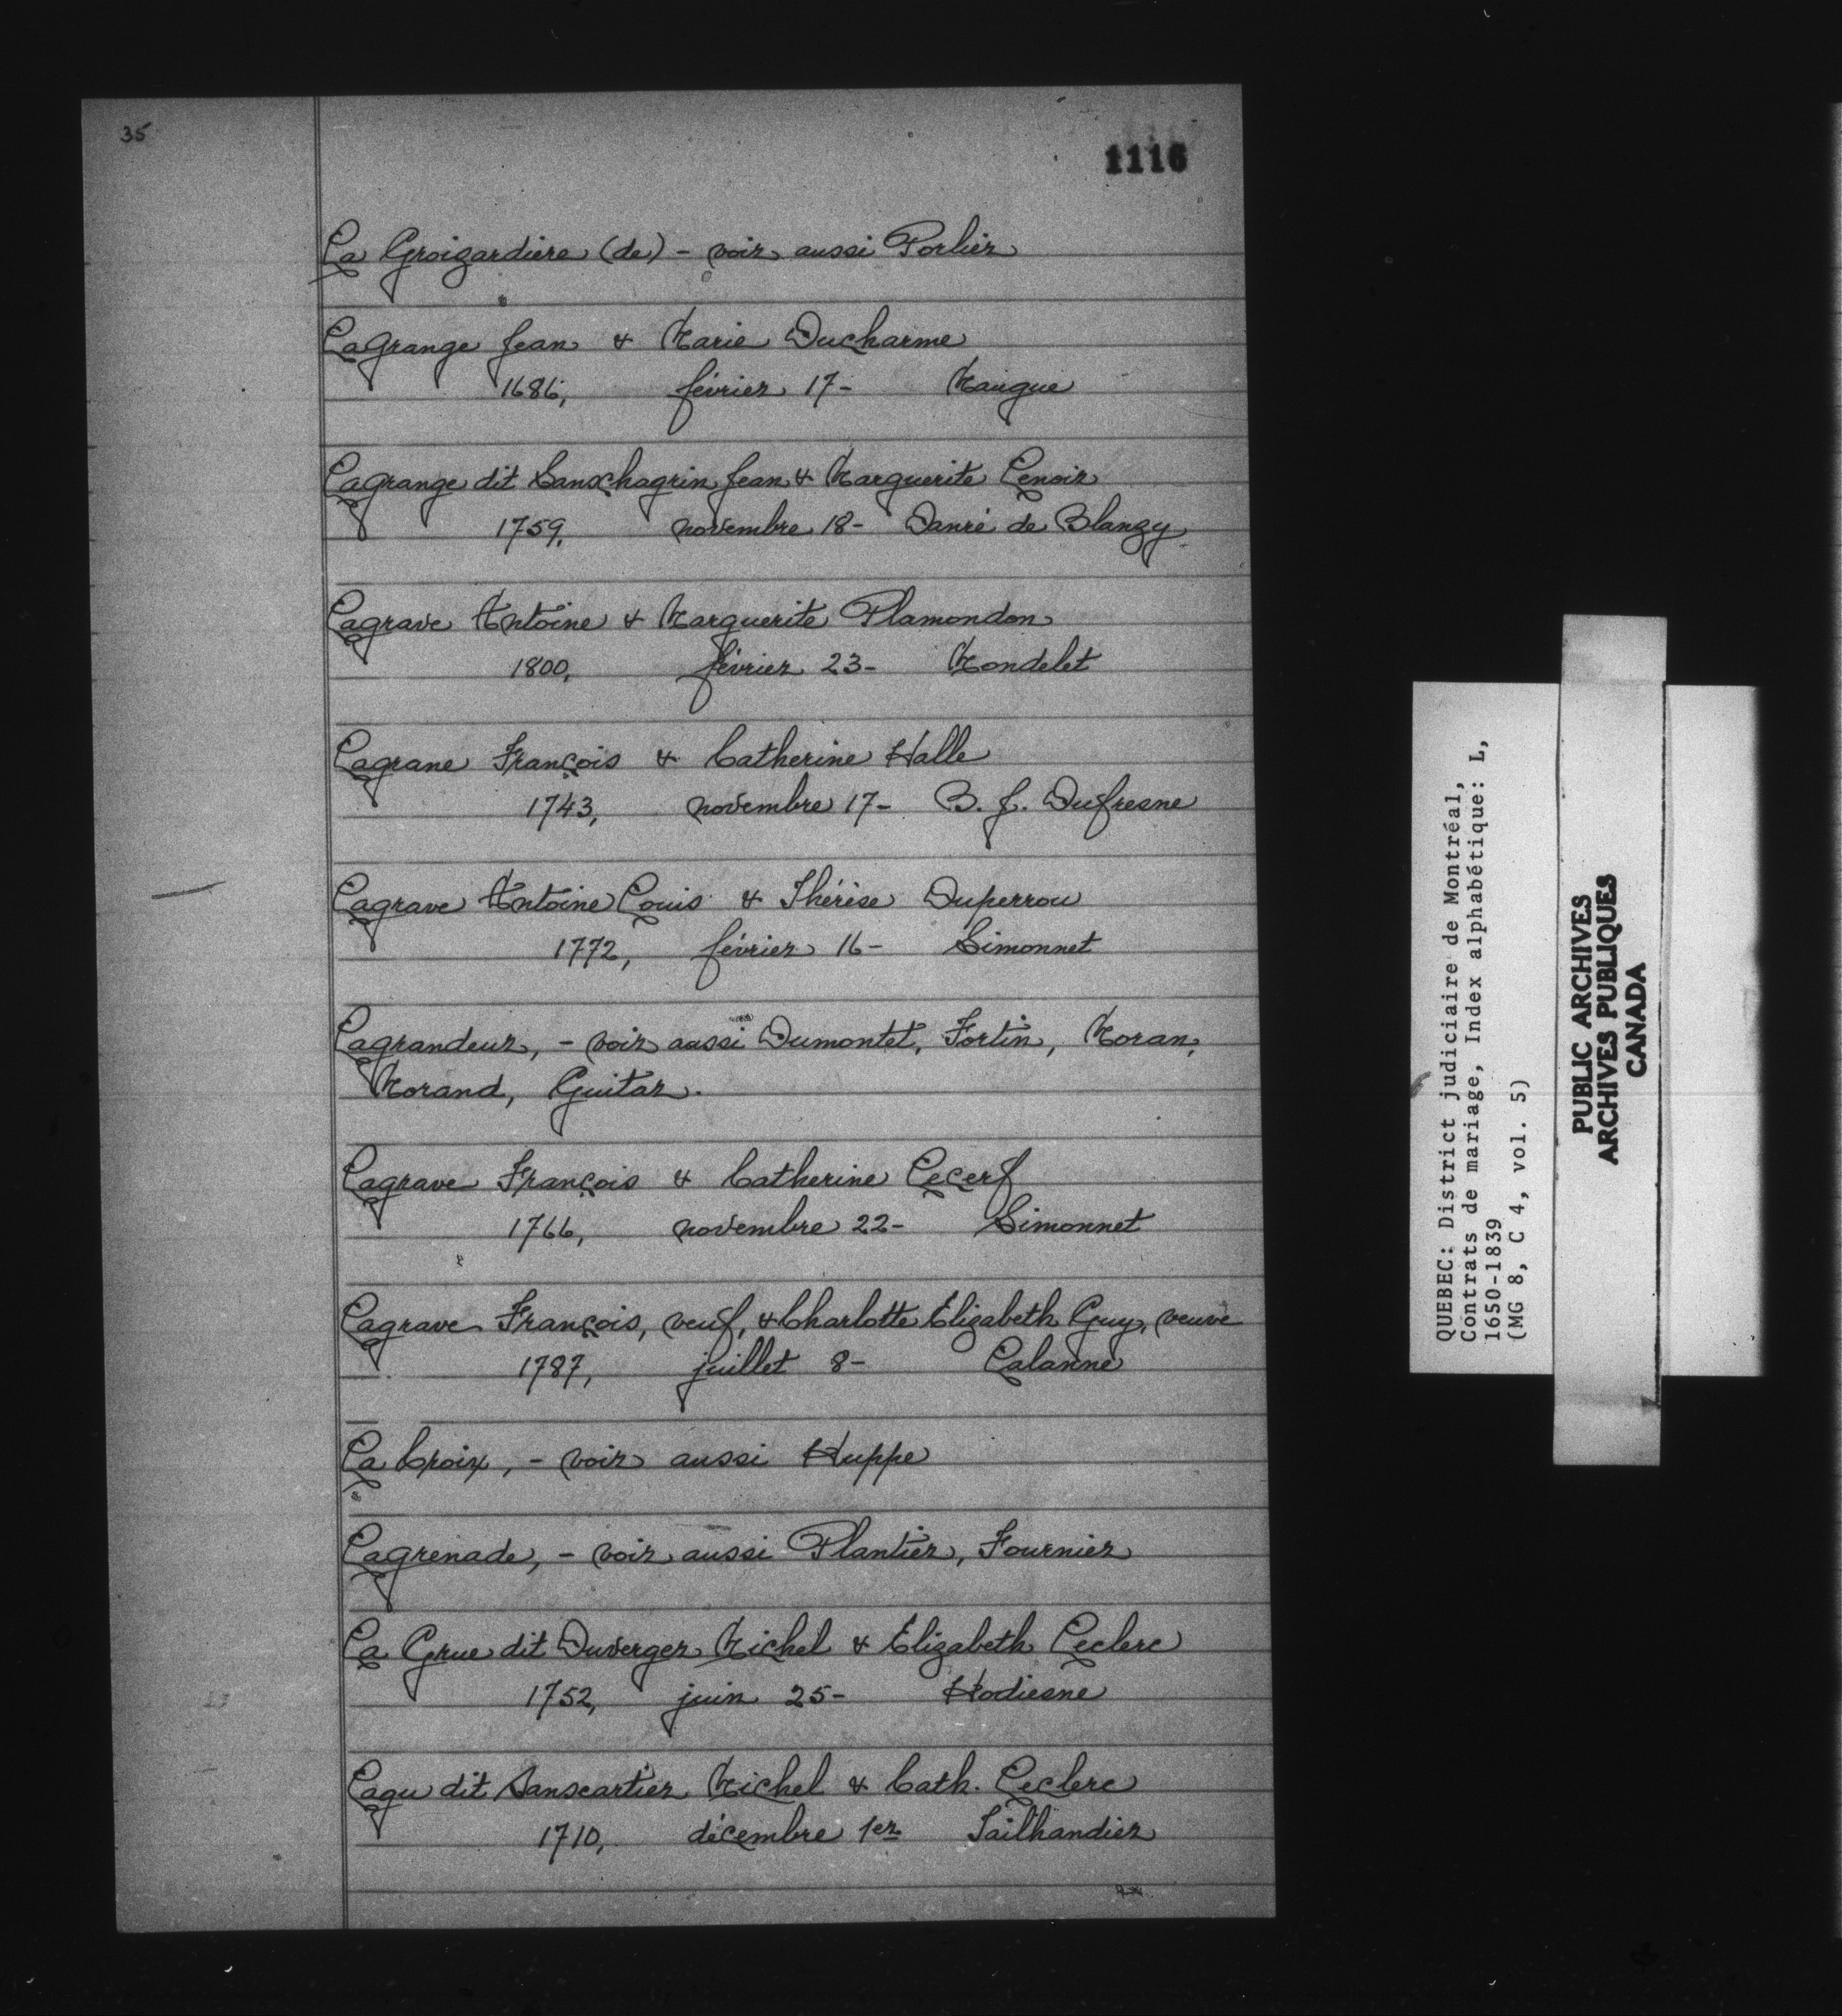 35
1116
La Groizardiere (de) - voir aussi Porlier
LaGrange Jean & Marie Ducharme
1686, février 17- Maugue
Lagrange dit Sanschagrin Jean & Marguerite Lenoir
1759, novembre 18- Danré de Blanzy
Lagrave Antoine & Marguerite Plamondon
1800, février 23- Mondelet
Lagrane François & Catherine Halle
1743, novembre 17- B. J. Dufresne
Lagrave Antoine Louis & Thérèse Duperrou
1772, février 16- Simonnet
Lagrandeur, - voir aussi Dumontet, Fortin, Moran,
Morand, Guitar.
Lagrave François & Catherine Lecerf
1766, novembre 22- Simonnet
Lagrave François, veuf, & Charlotte Elizabeth Guy, veuve
1787, juillet 8- Lalanne
La Croix, - voir aussi Huppe
Lagrenade, - voir aussi Plantier, Fournier
La Grue dit Duverger Michel & Elizabeth Leclerc
1752, juin 25- Hodiesne
Lagu dit Sanscartier Michel & Cath. Leclerc
1710, décembre 1er Tailhandier
QUEBEC: District judiciaire de Montréal,
Contrats de mariage, Index alphabétique: L,
1650-1839
(MG 8, C 4, vol. 5)
PUBLIC ARCHIVES
ARCHIVES PUBLIQUES
CANADA